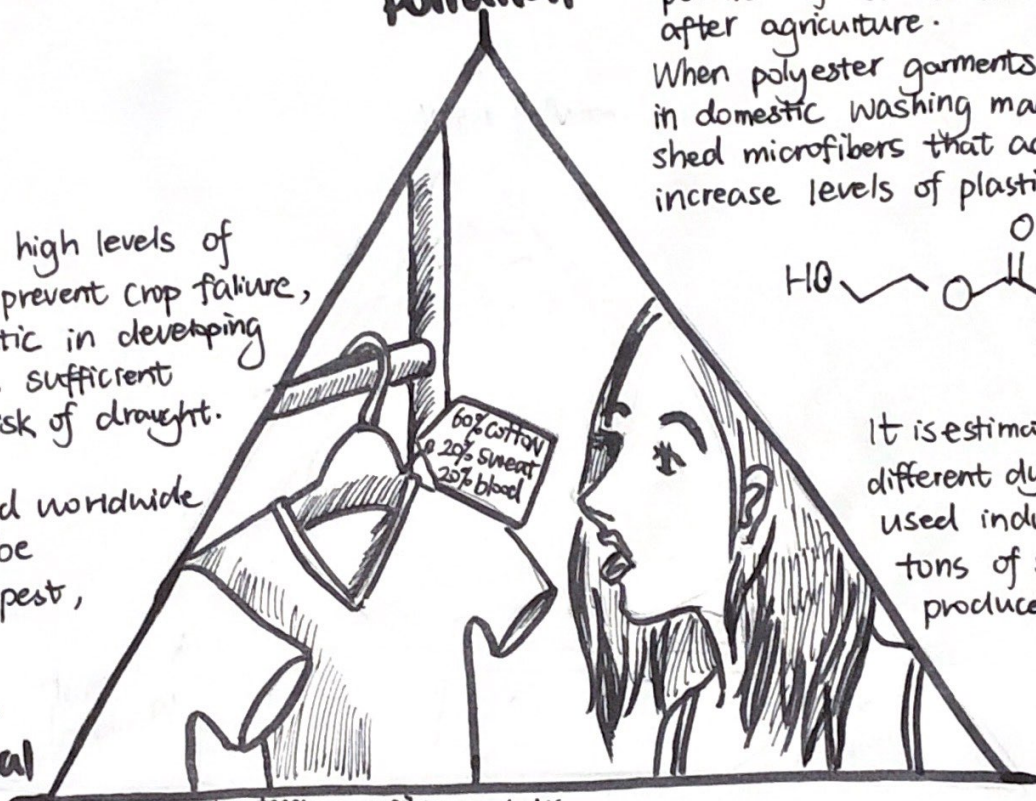 Pollution
after agriculture.
When polyester garments
in domestic washing ma
shed microfibers that ac
increase levels of plasti
O
HO
O
high levels of
prevent crop faliure,
tic in developing
sufficient
isk of draught.
d worldwide
be
pest,
al
60% cotton
20% sweat
20% blood
It is estima
different dy
used indu
tons of
produce